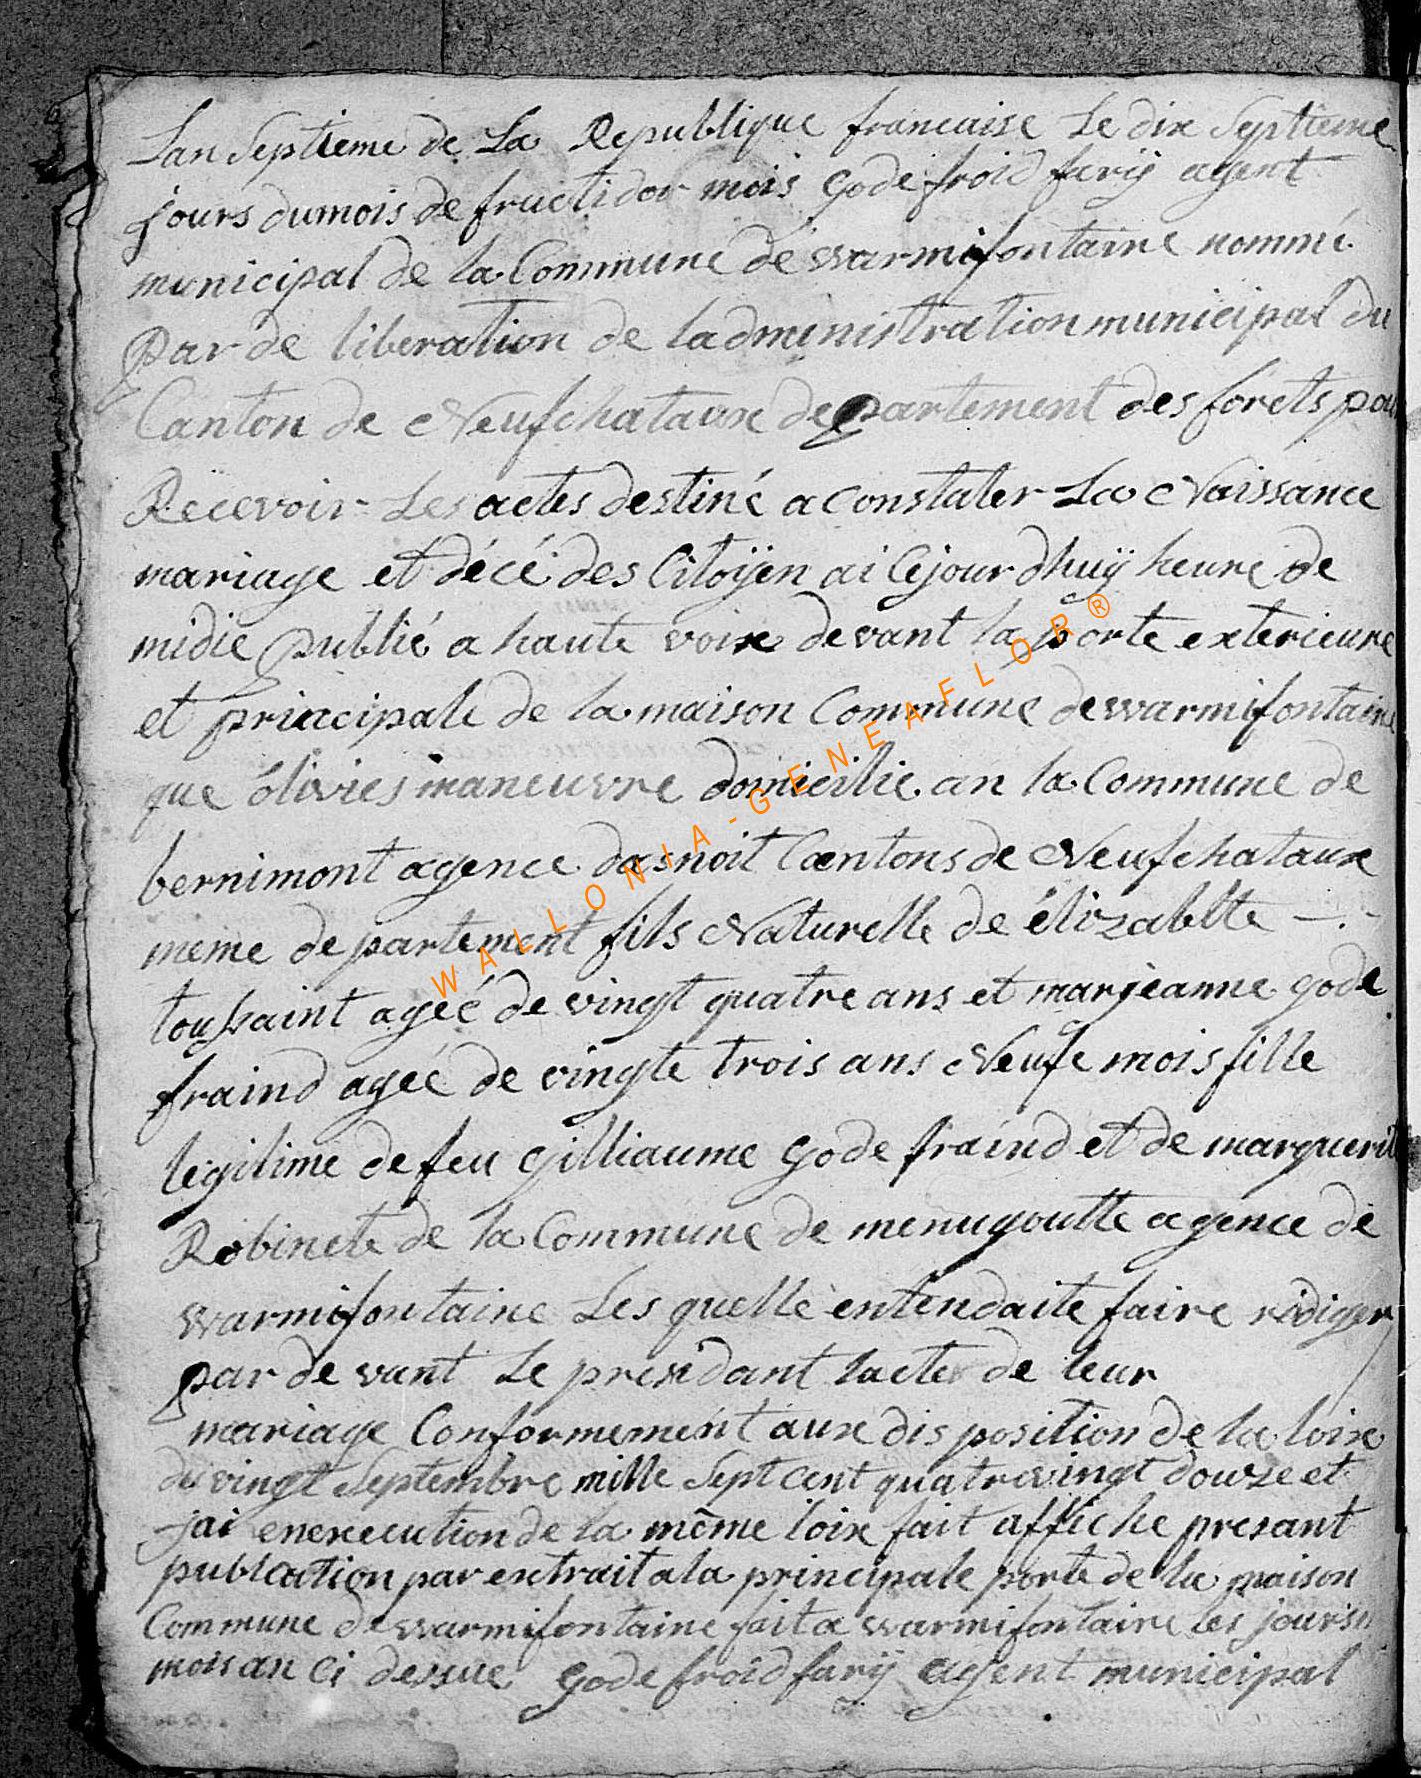 Lan Septieme de La Republique francaise Le dix Septieme
jours dumois de fructidor mois godefroid farÿ agent
municipal de la Commune de warmifontaine nommé
par de liberation de ladministration municipal du
Canton de Neufchataux departement des forets pou
Recevoir Les actes destiné a Constater La Naissance
mariage et décé des Citoÿen ai Cejour dhuÿ heure de
midie publié a haute voix devant la porte exterieure
et principale de la maison Commune de warmifontaine
que ólivies maneuvre domicilie an la Commune de
bernimont agence dasnoit Cantons de Neufchataux
meme departement fils Naturelle de élizabette
toussaint ageé de vingt quatre ans et marjeanne gode
fraind ageé de vingte trois ans Neufe mois fille
legitime de feu gilliaume gode fraind et de marguerit
Robinete de la Commune de menugoutte agence de
warmifontaine Les quelle entendaite faire rediger
par de vant Le presidant lacte de leur
mariage Conformement aux disposition de la loix
du vingt Septembre mille Sept cent quatrevingt douze et
jai enexecution de la même loix fait affiche presant
publication par extrait a la principale porte de la maison
Commune de warmifontaine fait a warmifontaire les jours
mois an Ci dessue godefroid farÿ agent municipal
WALLONIA-GENEAFLOR®